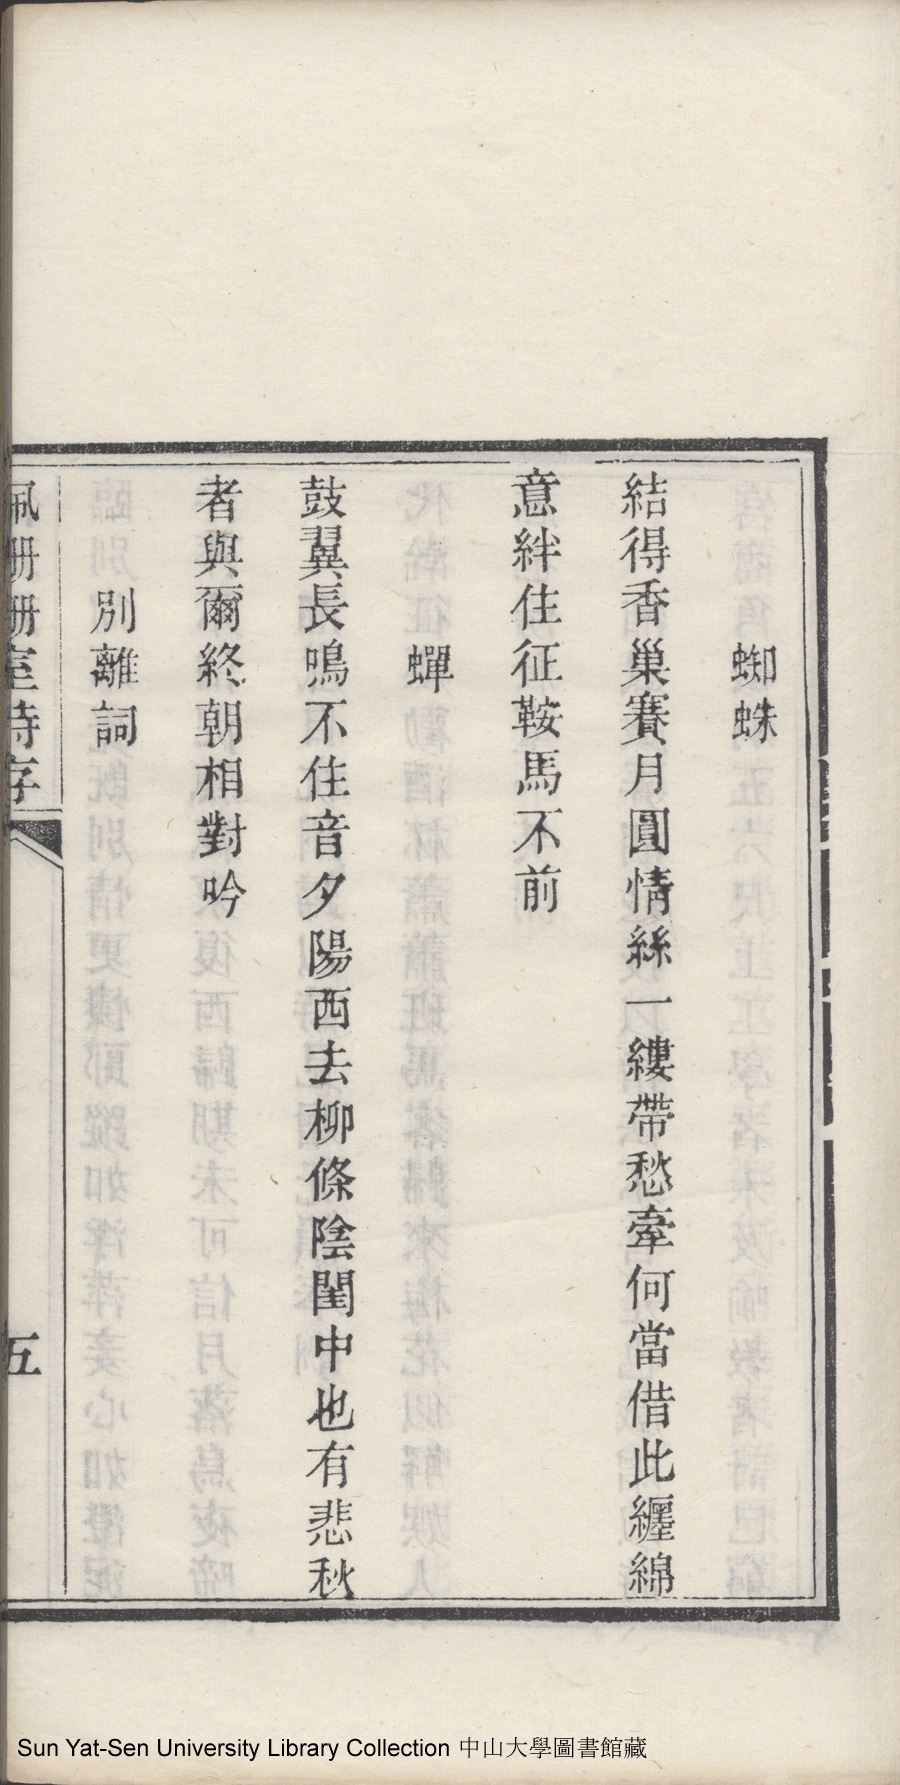 蜘蛛
結得香巢賽月圓情絲一縷帶愁牽何當借此纏綿
意絆住征鞍馬不前
蟬
鼓翼長鳴不住音夕陽西去柳條陰閨中也有悲秋
者與爾終朝相對吟
別離詞
佩珊珊室詩存
五
Sun Yat-Sen University Library Collection 中山大學圖書館藏